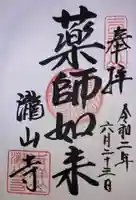 奉拝
令和二年
六月二十三日
薬師如来
瀧山寺